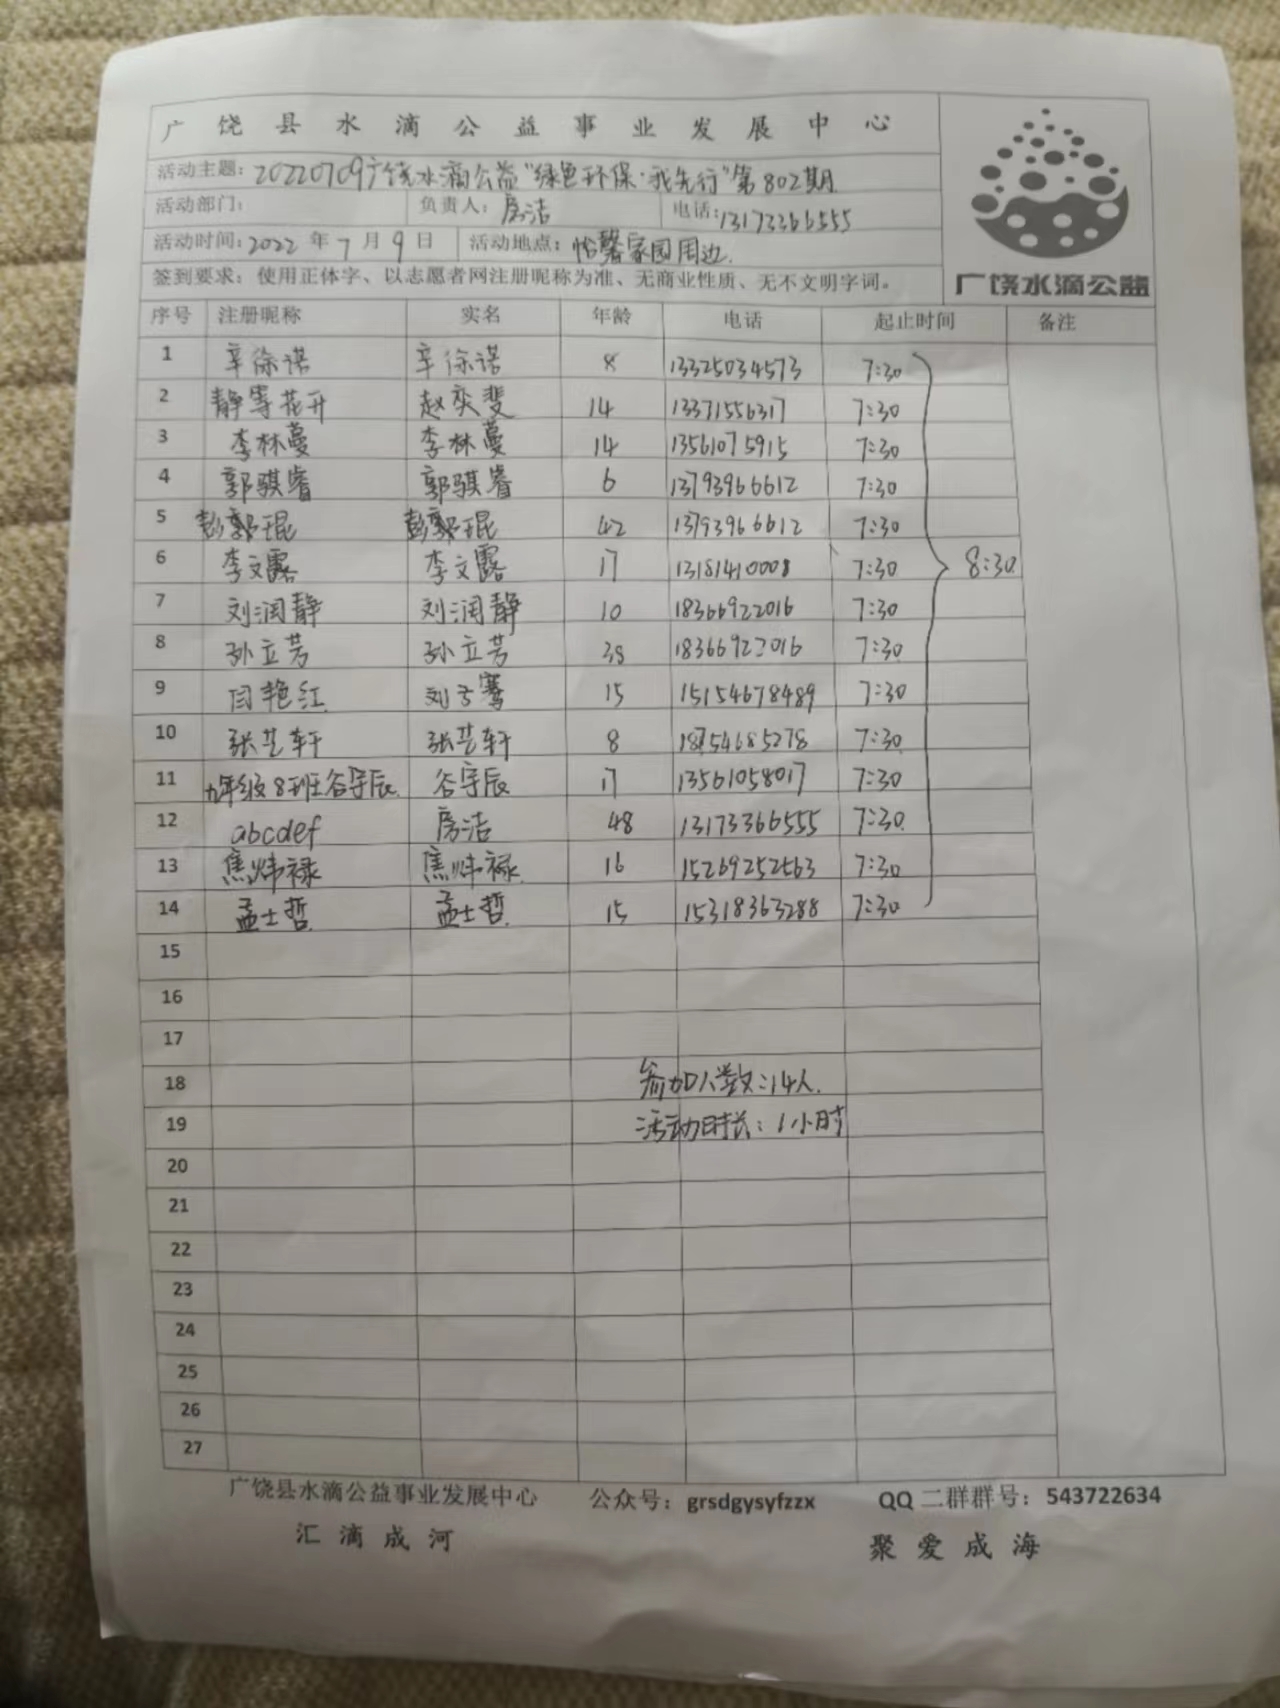 广饶县水滴公益事业发展中心
活动主题：20220709广饶水滴公益"绿色环保·我先行"第802期
活动部门： 负责人：房洁 电话：13173366555
活动时间：2022年7月9日 活动地点：怡馨家园周边
签到要求：使用正体字、以志愿者网注册昵称为准、无商业性质、无不文明字词。
广饶水滴公益
序号 注册昵称 实名 年龄 电话 起止时间 备注
1 辛徐诺 辛徐诺 8 13325034573 7:30
2 静等花开 赵奕斐 14 13371556317 7:30
3 李林蔓 李林蔓 14 13561075915 7:30
4 郭骐睿 郭骐睿 6 13793966612 7:30
5 彭郭琨 彭郭琨 42 13793966612 7:30
6 李文露 李文露 17 13181410008 7:30 8:30
7 刘润静 刘润静 10 18366922016 7:30
8 孙立芳 孙立芳 38 18366922016 7:30
9 闫艳红 刘子骞 15 15154678489 7:30
10 张芸轩 张芸轩 8 18754685278 7:30
11 九年级8班谷宇辰 谷宇辰 17 13561058017 7:30
12 abcdef 房洁 48 13173366555 7:30
13 焦炜禄 焦炜禄 16 15269252563 7:30
14 孟士哲 孟士哲 15 15318363288 7:30
15
16
17
18 参加人数：14人.
19 活动时长：1小时
20
21
22
23
24
25
26
27
广饶县水滴公益事业发展中心 公众号：grsdgysyfzzx QQ二群群号：543722634
汇滴成河 聚爱成海